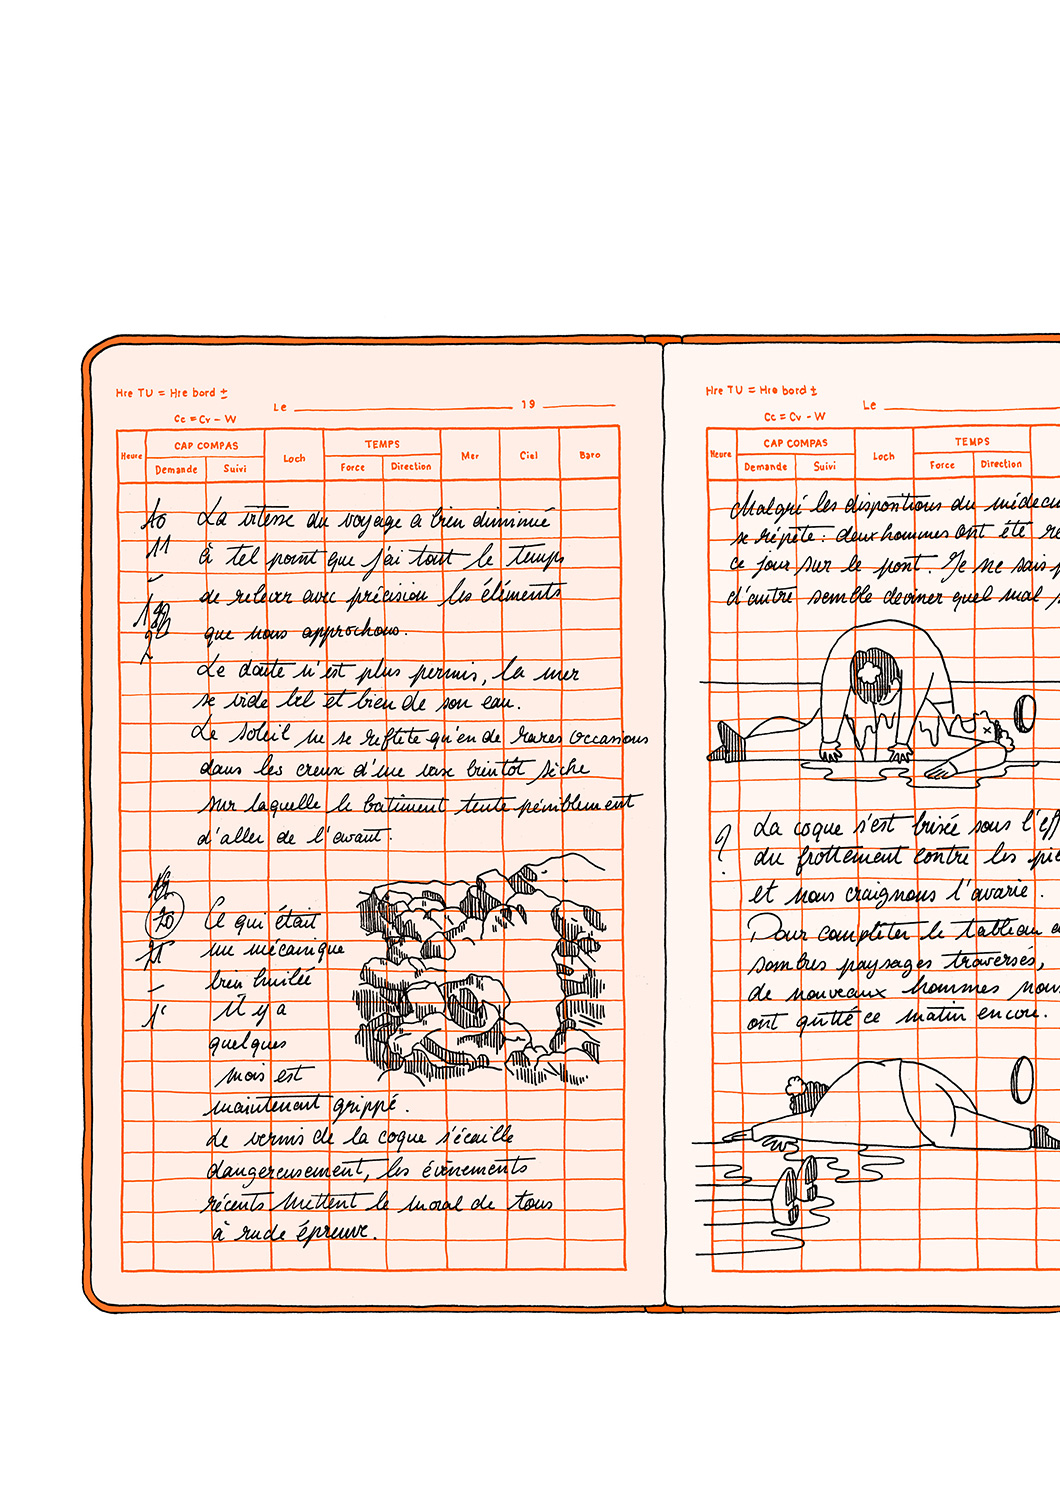 Hre TU = Hre bord ±
Le 19
Cc = Cv - W
Heure
CAP COMPAS
Demande Suivi
Loch
TEMPS
Force Direction
Mer
Ciel
Baro
10
11
La vitesse du voyage a bien diminué
à tel point que j'ai tout le temps
de relever avec précision les éléments
que nous approchons.
Le doute n'est plus permis, la mer
se vide bel et bien de son eau.
Le soleil ne se reflète qu'en de rares occasions
dans les creux d'une vase bientôt sèche
sur laquelle le bâtiment tente péniblement
d'aller de l'avant.
20
Ce qui était
une mécanique
bien huilée
il y a
quelques
mois est
maintenant grippé.
Le vernis de la coque s'écaille
dangereusement, les évènements
récents mettent le moral de tous
à rude épreuve.
Hre TU = Hre bord ±
Le
Cc = Cv - W
Heure
CAP COMPAS
Demande Suivi
Loch
TEMPS
Force Direction
Malgré les dispositions du médecin
se répète : deux hommes ont été
ce jour sur le pont. Je ne sais
d'autre semble deviner quel mal
?
La coque s'est brisée sous l'eff
du frottement contre les pie
et nous craignons l'avarie.
Pour compléter le tableau
sombres paysages traversés,
de nouveaux hommes nous
ont quitté ce matin encore.